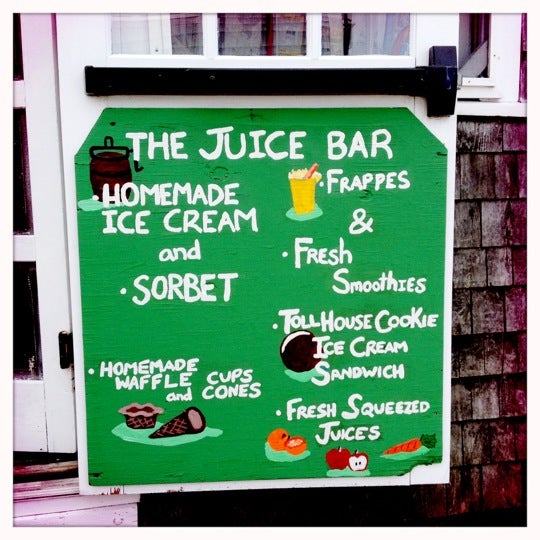 THE JUICE BAR
HOMEMADE
ICE CREAM
and
• SORBET
• HOMEMADE
WAFFLE CUPS
and CONES
• FRAPPES
&
• FRESH
SMOOTHIES
• TOLLHOUSE COOKIE
ICE CREAM
SANDWICH
• FRESH SQUEEZED
JUICES